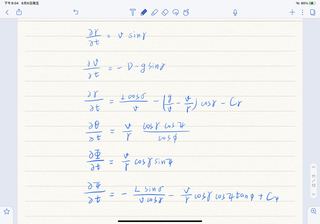 下午9:04 8月6日周五
∂r/∂t = v sinγ
∂V/∂t = -D - g sinγ
∂γ/∂t = L cosσ/v - (g/v - v/r) cosγ - Cγ
∂θ/∂t = v/r cosγ cosψ/cosϕ
∂Φ/∂t = v/r cosγ sinψ
∂ψ/∂t = - L sinσ/v cosγ - v/r cosγ cosψ tanϕ + Cψ